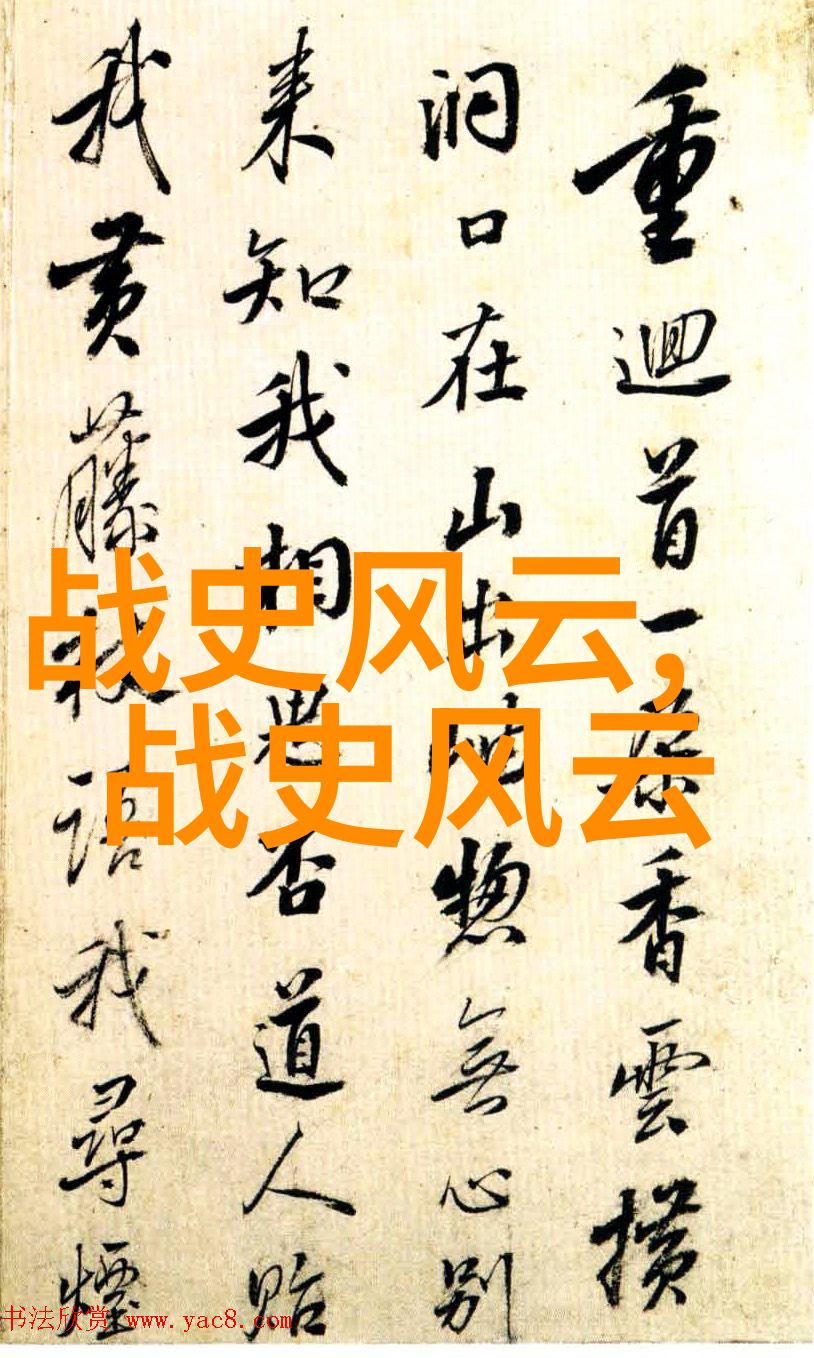 重迴首一香雲横
洞口在山出岫惣無心别
来知我相思否道人貽
我黄藤杖語我尋煙
战史风云,
战史风云
书法欣赏 www.yac8.com